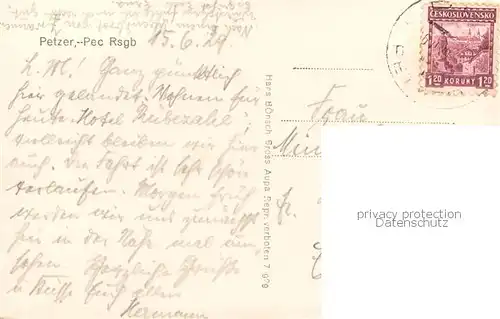 Petzer,--Pec Rsgb
15.6.29
L. M! Ganz pünktlich
hier gelandet. Wohnen für
heute Hotel Rübezahl
vielleicht bleiben wir hier
auch. Die Fahrt ist sehr schön
verlaufen. Morgen früh
werden wir uns zunächst
hier in der Nähe mal um
sehen Herzliche Grüße
u Küsse Euch allen
Hermann
Hans Bönsch Gross Aupa Repr. verboten 7
ČESKOSLOVENSKO
1.20 KORUNY 1.20
Frau
privacy protection
Datenschutz